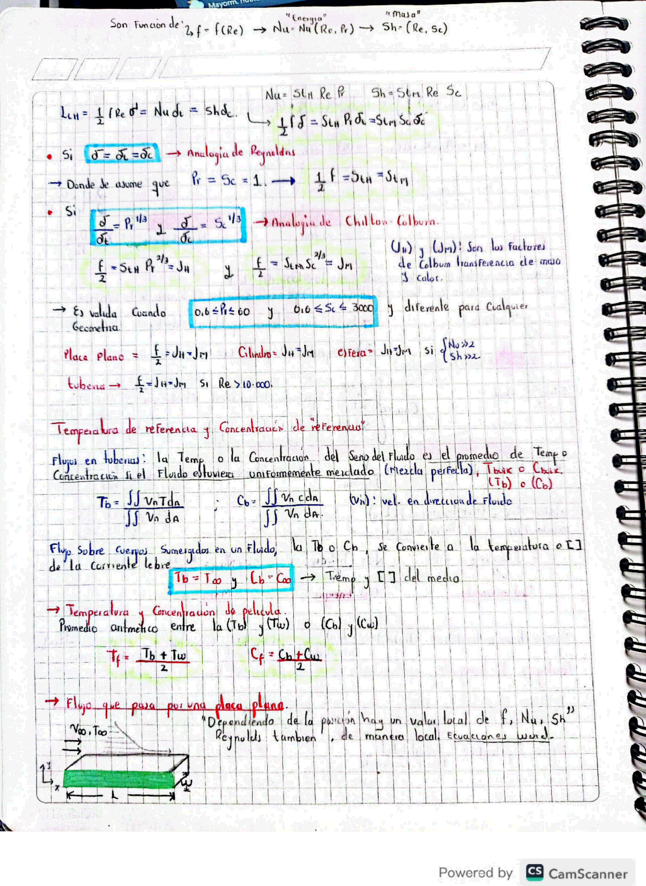 "Energía" "Masa"
Son Función de: ↳ f = f(Re) → Nu = Nu(Re, Pr) → Sh = (Re, Sc)
Nu = StH Re Pr Sh = Stm Re Sc
LcH = 1/2 f Re δ = Nu δt = Sh δc.
↳ 1/2 f δ = StH Pr δt = StM Sc δc
• Si δ = δt = δc → Analogía de Reynolds
→ Donde se asume que Pr = Sc = 1. → 1/2 f = StH = StM
• Si δ/δt = Pr^1/3 y δ/δc = Sc^1/3 → Analogía de Chilton Colburn.
f/2 = StH Pr^2/3 = JH y f/2 = Stm Sc^2/3 = JM
(JH) y (JM): Son los factores
de Colburn transferencia de masa
y calor.
→ Es valida Cuando 0,6 ≤ Pr ≤ 60 y 0,6 ≤ Sc ≤ 3000 y diferente para Cualquier
Geometria
Placa Plano = f/2 = JH = JM Cilindro = JH = JM esfera = JH = JM si { Nu >> 2 Sh >> 2
tuberia → f/2 = JH = JM Si Re > 10.000.
Temperatura de referencia y Concentración de "referencia"
Flujos en tuberias: la Temp o la Concentración del Seno del Fluido es el promedio de Temp o
Concentración si el Fluido estuviera uniformemente mezclado (Mezcla perfecta), Tbulk o Cbulk.
(Tb) o (Cb)
Tb = ∫∫ Vn T dA / ∫∫ Vn dA ; Cb = ∫∫ Vn C dA / ∫∫ Vn dA. (Vn): vel. en direccion de Fluido
Flujo Sobre Cuerpos Sumergidos en un Fluido, la Tb o Cb, se Convierte a la temperatura o [ ]
de la corriente lebre
Tb = T∞ y Cb = C∞ → Temp y [ ] del medio.
→ Temperatura y Concentración de película.
Promedio aritmético entre la (Tb) y (Tw) o (Cb) y (Cw)
Tf = Tb + Tw / 2 Cf = Cb + Cw / 2
→ Flujo que pasa por una placa plana.
"Dependiendo de la posición hay un valor local de f, Nu, Sh"
Reynolds tambien, de manera local. Ecuaciones word.
V∞, T∞
y
x
L
w
Powered by CS CamScanner